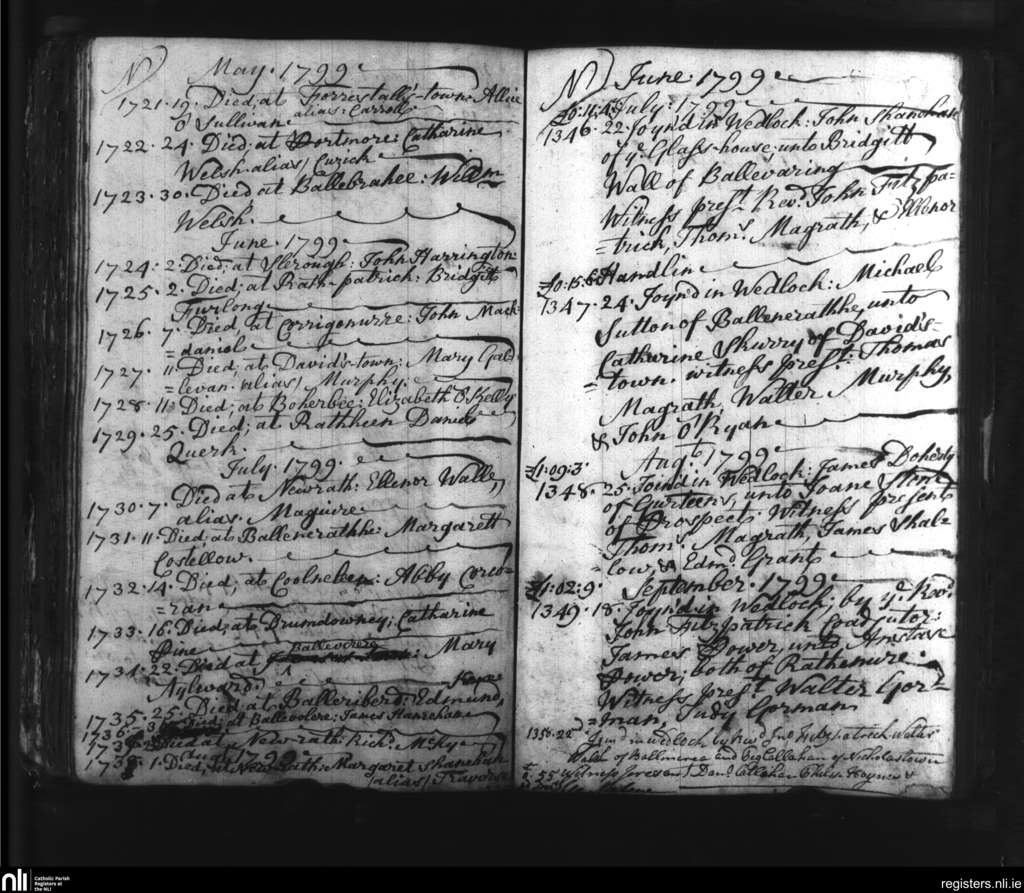 N May. 1799
1721. 19. Died, at Forrestalls-town: Allice
O'Sullivan alias: Carroll
1722. 24. Died; at Portmore: Catharine
Welsh alias/ Cuzick
1723. 30. Died at Ballebrahee: Willm
Welsh.
June. 1799
1724. 2. Died; at Slerough: John Harrington
1725. 2. Died; at Rath-patrick: Bridgitt
Furlong
1726. 7. Died, at Corrigonurre: John Mack
=daniel
1727. 11. Died, at David's-town: Mary
=levan. alias/ Murphy.
1728. 11. Died; at Boherbee: Elizabeth O'Kelly
1729. 25. Died; at Rathkeen Daniel
Querk.
July. 1799.
1730. 7. Died at Newrath: Ellenor Walle,
alias. Maguire
1731. 11. Died, at Ballenerathhe: Margarett
Costellow.
1732. 14. Died, at Abby Corco-
=ran
1733. 16. Died; at Drumdowney; Catharine
1734. 22. Died at Mary
Aylward.
1735. 25. Died, at Edmund,
Died; at James Hanrehane
Died at Newrath: Richd.
1. Died, at Newrath: Margaret Shanehan
/alias/
N June. 1799
£0:11:4 July. 1799
1346. 22. Joynd in Wedlock: John Shanehan
of ye Glass-house, unto Bridgitt
Wall of Ballevaring
Witness prest. Revd. John Fitzpa=
=trick, Thoms. Magrath, & Honor
£0:15:6 Handlin
1347. 24. Joynd in Wedlock: Michael
Sutton of Ballenerathhe, unto
Catharine Skurry of David's-
=town. witness prest: Thomas
Magrath, Walter Murphy,
& John O'Ryan
£1:09:3. Augt. 1799
1348. 25. Joind in Wedlock: James Dohedy
of Gurteens, unto Joane
of Prospect. Witness present
Thoms. Magrath, James Shal=
=low, & Edmd. Grant
£1:02:9. September. 1799
1349. 18. Joynd in Wedlock; by ye Revd.
John Fitz-patrick Coadjutor:
James Power, unto Anstace
Power; both of Rathenure.
Witness prest. Walter Gor=
=man, Judy Gorman
1350. 22 Joynd in wedlock by Revd Jno. Fitzpatrick Walter
Walsh of and Callahan of Nicholastown
Witness present Danl. Callahan
nli Catholic Parish
Registers at
the NLI
registers.nli.ie